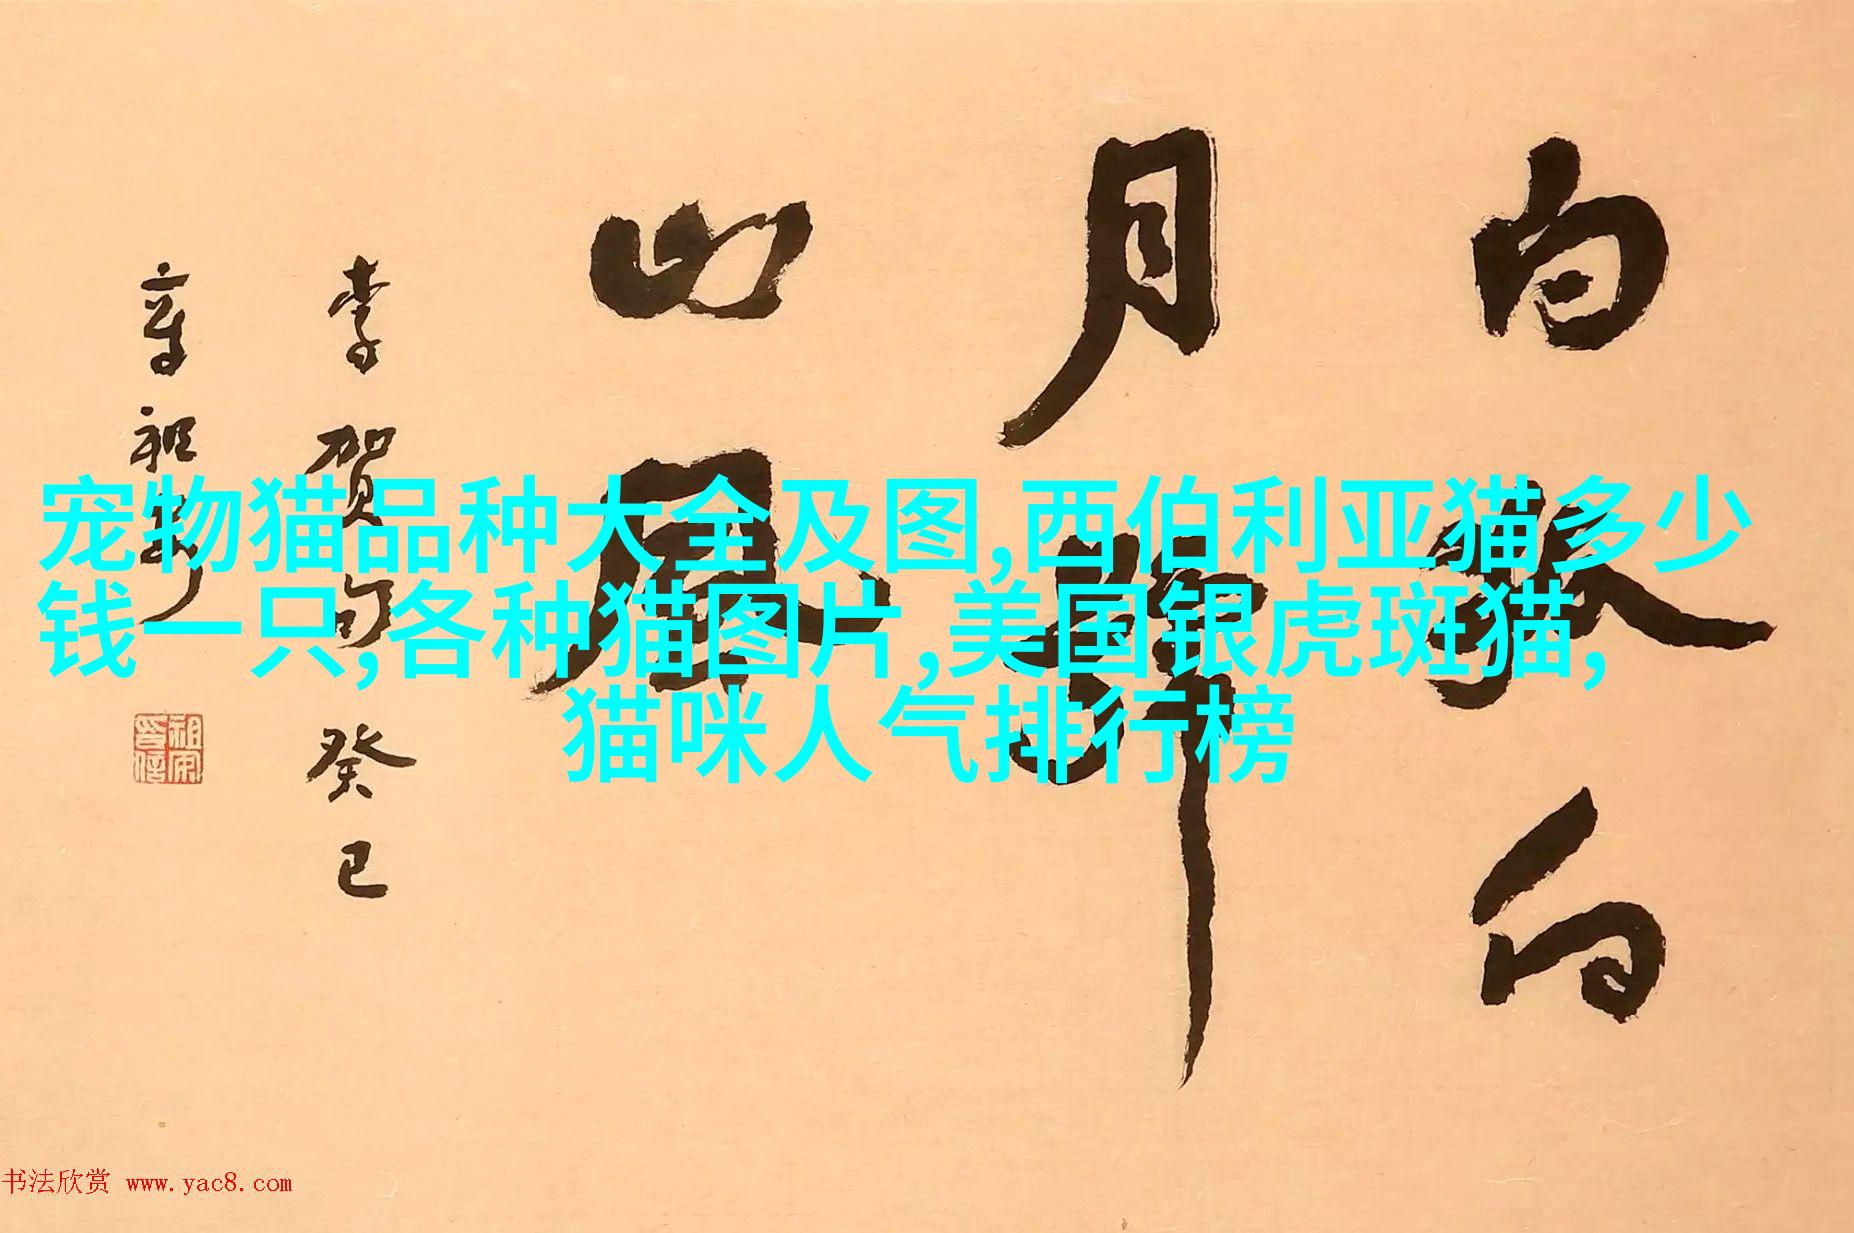 白狐向
月號
山風
李贺句 癸巳
章祖安
祖安印信
宠物猫品种大全及图,西伯利亚猫多少
钱一只,各种猫图片,美国银虎斑猫,
猫咪人气排行榜
书法欣赏 www.yac8.com